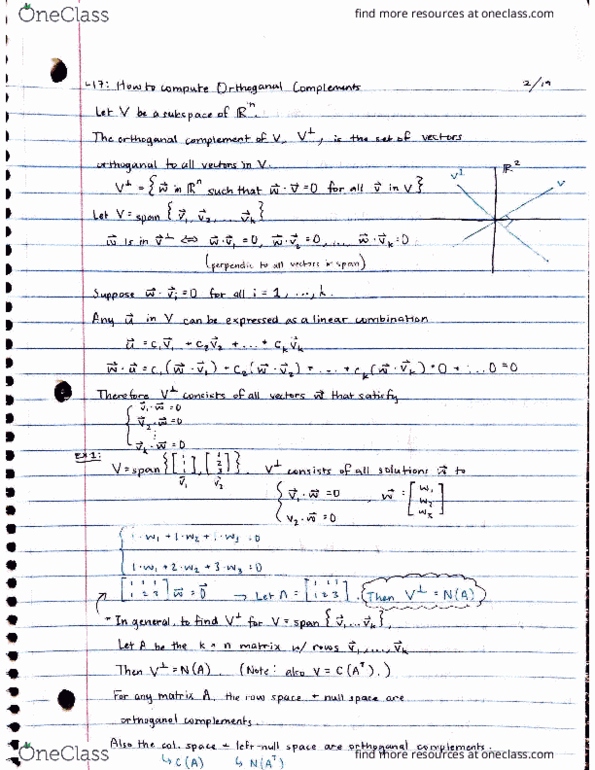 OneClass
find more resources at oneclass.com
L17: How to compute Orthoganal Complements 2/19
Let V be a subspace of ℝⁿ.
The orthoganal complement of V, V⊥, is the set of vectors
orthoganal to all vectors in V.
ℝ²
V⊥
V
V⊥ = { w⃗ in ℝⁿ such that w⃗ · v⃗ = 0 for all v⃗ in V }
Let V = span { v⃗₁, v⃗₂, ... v⃗ₖ }
w⃗ is in V⊥ ⇔ w⃗ · v⃗₁ = 0, w⃗ · v⃗₂ = 0, ... w⃗ · v⃗ₖ = 0
(perpendic to all vectors in span)
Suppose w⃗ · v⃗ᵢ = 0 for all i = 1, ..., k.
Any u⃗ in V can be expressed as a linear combination
u⃗ = c₁v⃗₁ + c₂v⃗₂ + ... + cₖv⃗ₖ
w⃗ · u⃗ = c₁(w⃗ · v⃗₁) + c₂(w⃗ · v⃗₂) + ... + cₖ(w⃗ · v⃗ₖ) = 0 + ... 0 = 0
Therefore V⊥ consists of all vectors w⃗ that satisfy
{ v⃗₁ · w⃗ = 0
v⃗₂ · w⃗ = 0
⋮
v⃗ₖ · w⃗ = 0
Ex 1:
V = span { [1 1 1], [1 2 3] }. V⊥ consists of all solutions w⃗ to
v⃗₁ v⃗₂
{ v⃗₁ · w⃗ = 0 , w⃗ = [w₁ w₂ w₃]
v₂ · w⃗ = 0
{ 1·w₁ + 1·w₂ + 1·w₃ = 0
1·w₁ + 2·w₂ + 3·w₃ = 0
[1 1 1; 1 2 3] w⃗ = 0⃗ → Let A = [1 1 1; 1 2 3]. Then V⊥ = N(A)
* In general, to find V⊥ for V = span { v⃗₁ ... v⃗ₖ },
Let A be the k × n matrix w/ rows v⃗₁, ..., v⃗ₖ
Then V⊥ = N(A). (Note: also V = C(Aᵀ).)
For any matrix A, the row space + null space are
orthoganal complements.
Also the col. space + left-null space are orthoganal complements.
↳ C(A) ↳ N(Aᵀ)
OneClass
find more resources at oneclass.com